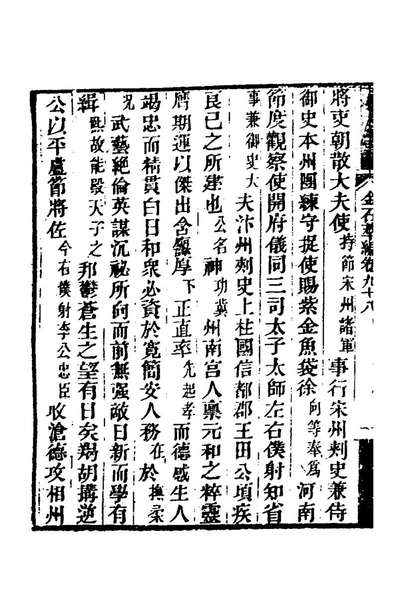 金石萃編卷九十八
一
將吏朝散大夫使持節宋州諸軍事行宋州刺史兼侍
御史本州團練守捉使賜紫金魚袋徐向等奉爲河南
節度觀察使開府儀同三司太子太師左右僕射知省
事兼御史大夫汴州刺史上柱國信都郡王田公頃疾
良已之所建也公名神功冀州南宮人稟元和之粹靈
膺期運以傑出含弘厚下正直率先起孝而德感生人
竭忠而精貫白日和衆必資於寬簡安人務在於撫柔
況武藝絕倫英謀沉祕所向而前無强敵日新而學有
緝熙故能殿天子之邦鬱蒼生之望有日矣羯胡搆逆
公以平盧節將佐今右僕射李公忠臣收滄德攻相州